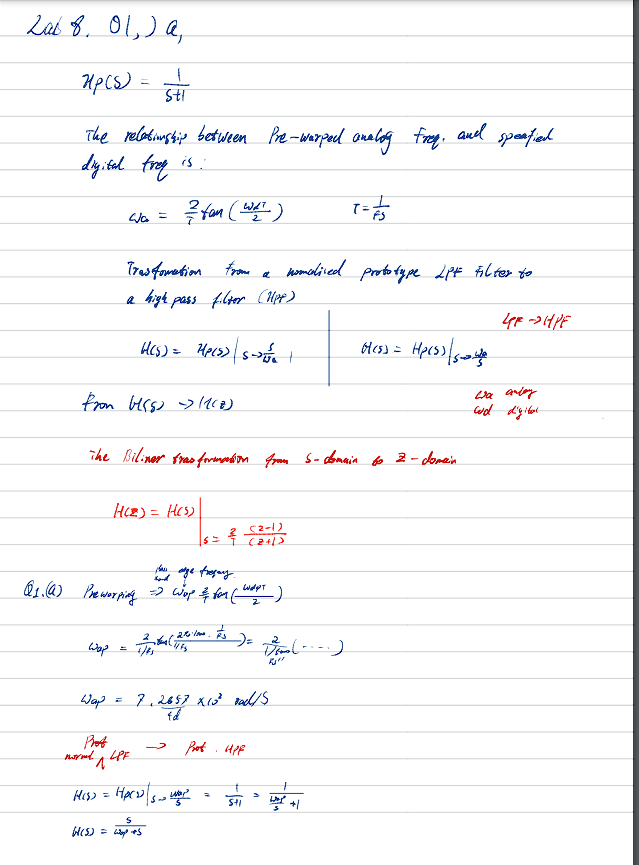 Lab 8. Q1,) a,
Hp(s) = 1/(s+1)
The relationship between Pre-warped analog Freq. and specified
digital freq is:
ωa = 2/T tan(ωdT/2) T = 1/Fs
Trasfomation from a nomalised prototype LPF Filter to
a high pass filter (HPF)
LPF → HPF
H(s) = Hp(s)|s→s/ωa H(s) = Hp(s)|s→ωa/s
ωa analog
ωd digital
From H(s) → H(z)
The Biliner trasformation from s-domain to z-domain
H(z) = H(s)|s = 2/T (z-1)/(z+1)
edge freqency
Q1.(a) Prewarping ⇒ ωap = 2/T tan(ωdpT/2)
ωap = 2/(1/Fs) tan( ) = 2 (.....)
ωap = 7.2657 ×10³ rad/s
4d
Prot
normal ∧ LPF → Prot. HPF
H(s) = Hp(s)|s→ωap/s = 1/(s+1) = 1/(ωap/s +1)
H(s) = s/(ωap+s)